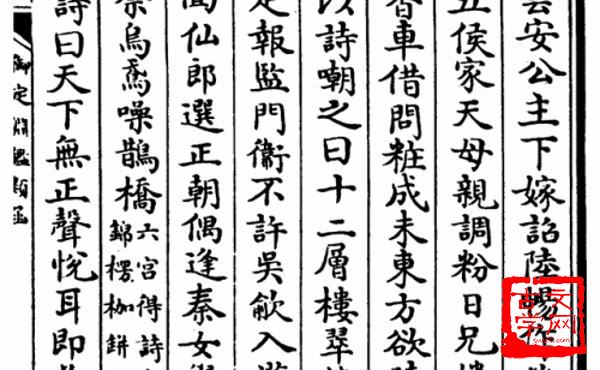 雲安公主下嫁詔陸暢作
五侯家天母親調粉日兄
香車借問粧成未東方欲
以詩嘲之曰十二層樓翠
報監門衛不許吳歈入
聞仙郎選正朝偶逢秦女
禁烏鳶噪鵲橋六宮得詩
錦楞枷餅
詩曰天下無正聲悅耳即
御定淵鑑類函
古文学网